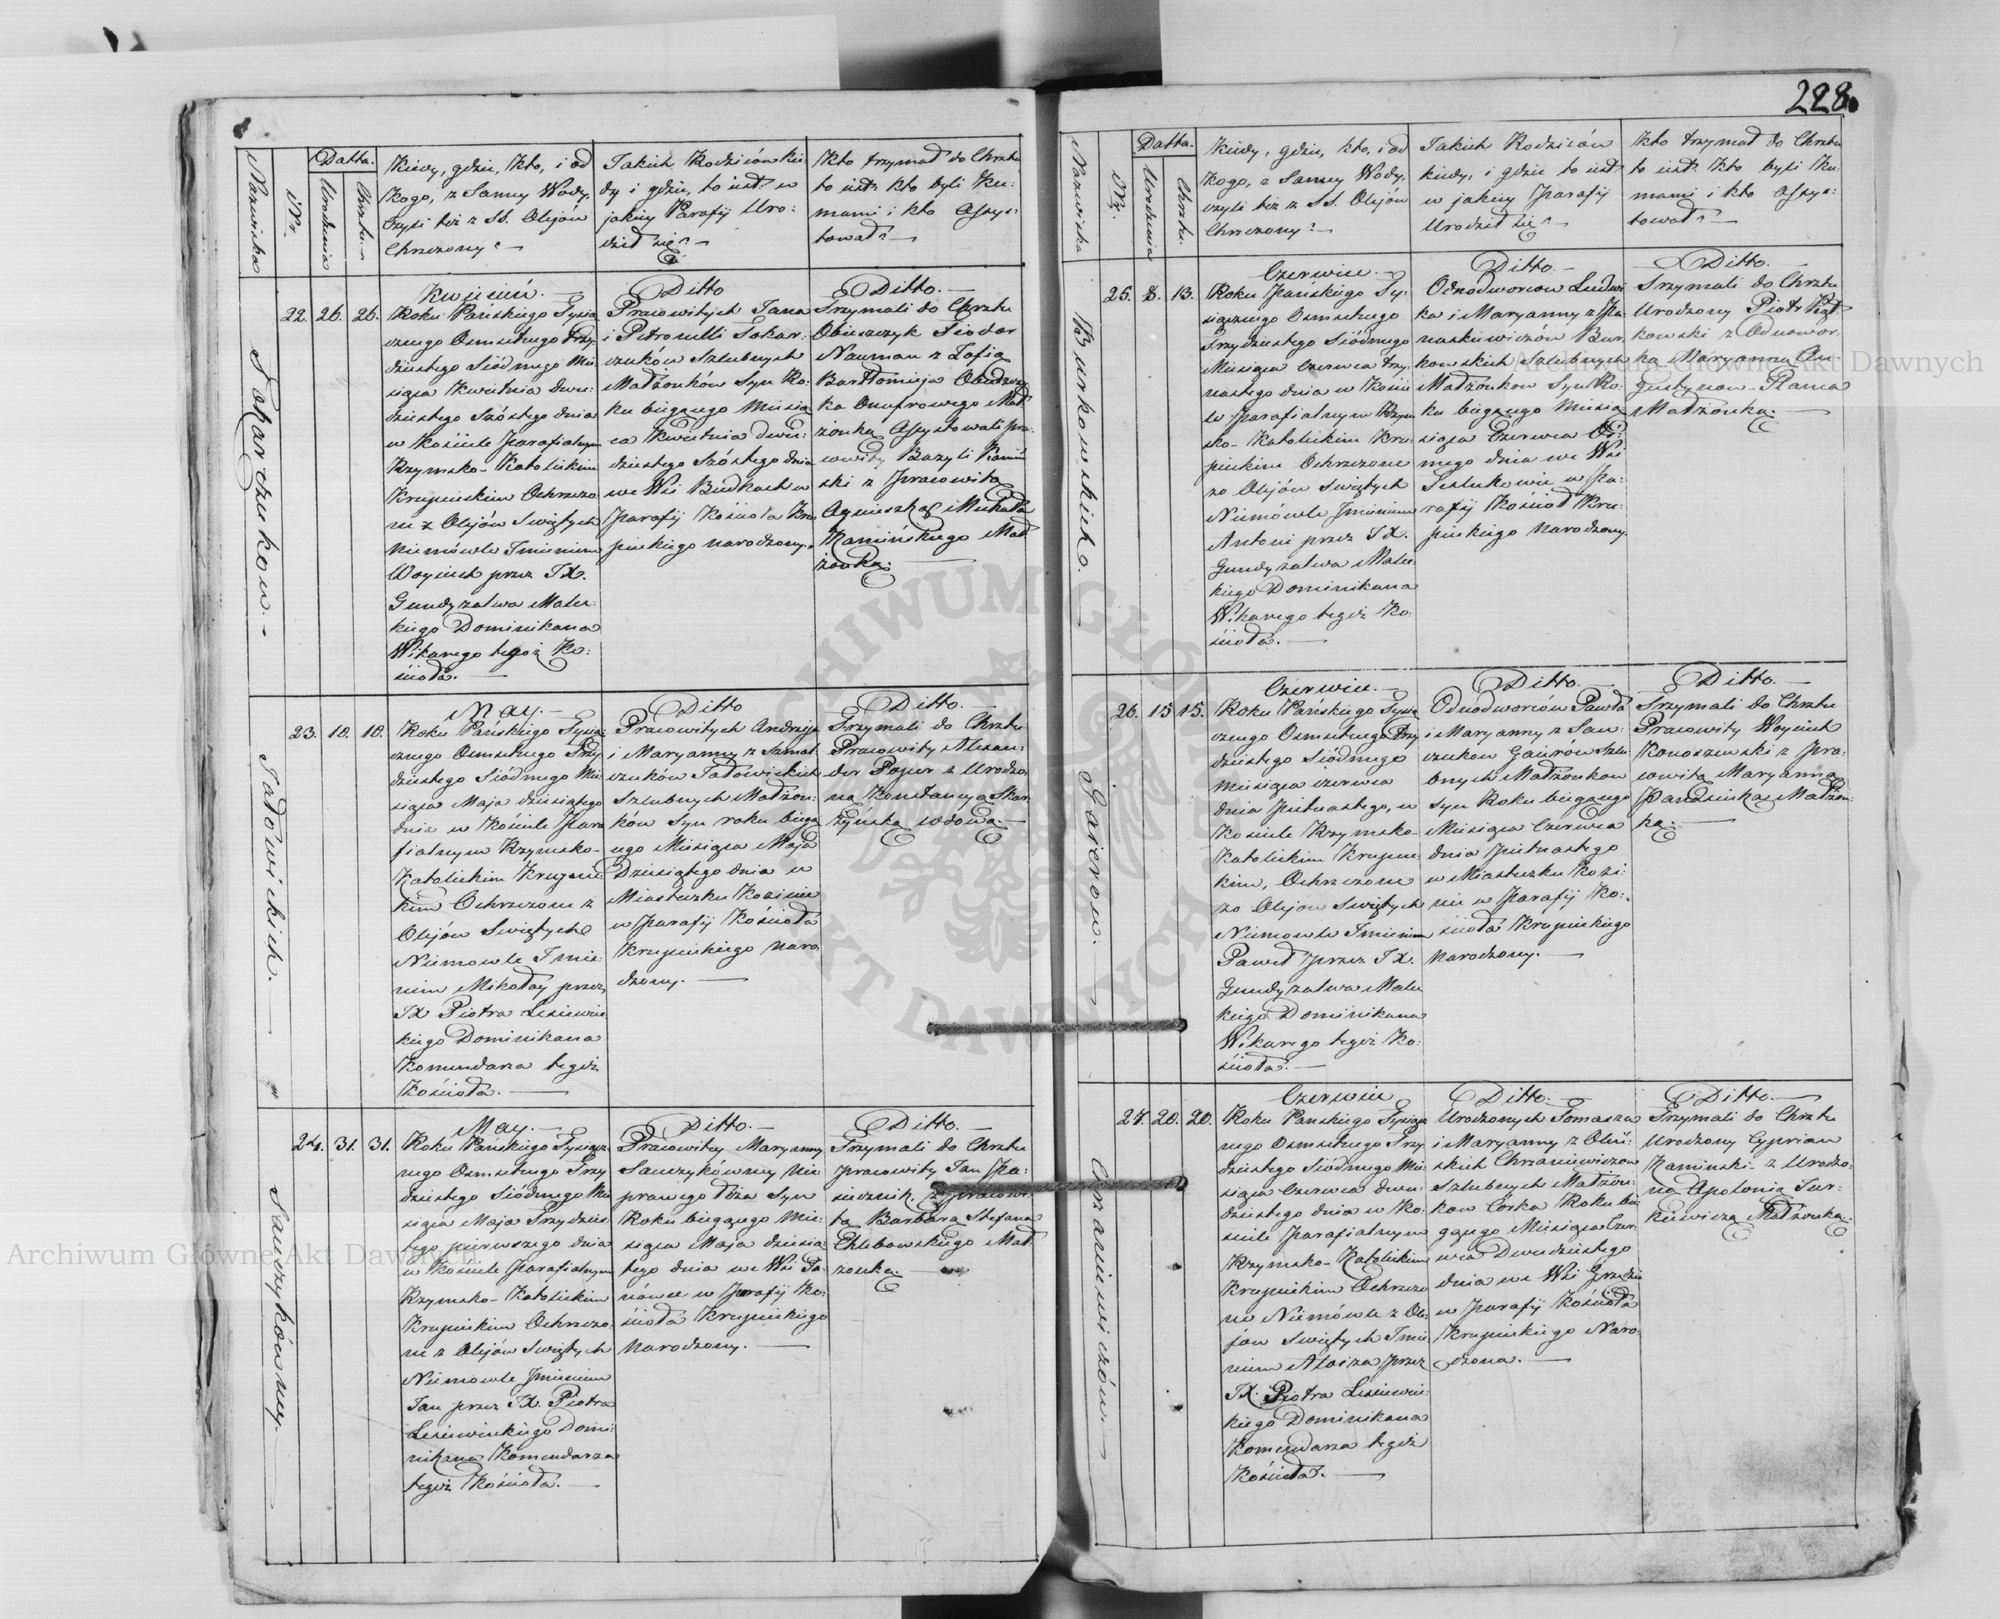 228.
Nazwiska
Nr.
Datta.
Urodzenia
Chrztu.
Kiedy, gdzie, Kto, i od
Kogo, z Samey Wody,
Czyli też z SS. Olejów
Chrzczony?
Jakich Rodziców kie-
dy i gdzie, to iest w
jakiey Parafij Uro:
dził się?
Kto trzymał do Chrztu
to iest: kto byli Ku:
mami i kto assys:
tował?
Tokarczuków.
22. 26. 26.
Kwiecień.
Roku Pańskiego Tysią
cznego Ośmsetnego Trzy
dziestego Siódmego Mie
siąca Kwietnia dwu:
dziestego Szóstego dnia
w Kościele Parafialnym
Rzymsko-Katolickim
Krupieckim Ochrzczo
ne z Olejów Swiętych
Niemówle Imieniem
Woyciech przez JX.
Gundyzalwa Malec:
kiego Dominikana
Wikarego tegoż Ko:
ścioła.
Ditto
Pracowitych Jana
i Petronelli Tokar:
czuków Szlubnych
Małżonków Syn Ro:
ku bieżącego Miesią
ca Kwietnia dwu:
dziestego Szóstego dnia
we Wsi Budkach w
Parafij Kościoła Kru
pieckiego narodzony.
Ditto.
Trzymali do Chrztu
Teodor
Nauman z Zofią
Bartłomieja
ka Onufrowego Mał.
żonką Assystowali pra:
cowity Bazyli Kamiń
ski z Pracowitą
Agnieszką Michała
Kamińskiego Mał
żonką.
Jałowickich.
23. 10. 10.
May.
Roku Pańskiego Tysią
cznego Ośmsetnego Trzy
dziestego Siódmego Mie
siąca Maja dziesiątego
dnia w Kościele Para
fialnym Rzymsko-
Katolickim Krupiec
kim Ochrzczone z
Olejów Swiętych
Niemowle Imie:
niem Mikołay przez
JX Piotra Lisiewic
kiego Dominikana
Komendarza tegoż
Kościoła.
Ditto
Pracowitych Andrzeja
i Maryanny z Szmat
czuków Jałowickich
Szlubnych Małżon:
ków Syn roku bieżą
cego Miesiąca Maja
Dziesiątego dnia w
Miasteczku Kozinie
w Parafij Kościoła
Krupieckiego naro
dzony.
Ditto.
Trzymali do Chrztu
Pracowity Alexan:
der Poper z Urodzo:
ną Konstancyą Skar
żyńską wdową.
Sauczykówney.
24. 31. 31.
May.
Roku Pańskiego Tysiącz
nego Ośmsetnego Trzy
dziestego Siódmego Mie
siąca Maja Trzydzies
tego pierwszego dnia
w Kościele Parafialnym
Rzymsko-Katolickim
Krupieckim Ochrzczo:
ne z Olejów Swiętych
Niemowle Imieniem
Jan przez JX. Piotra
Lisiewickiego Domi:
nikana Komendarza
tegoż Kościoła.
Ditto.
Pracowitey Maryanny
Sauczykówney nie
prawego łoża Syn
Roku bieżącego Mie:
siąca Maja dziesią:
tego dnia we Wsi Ta:
w Parafij Ko:
ścioła Krupieckiego
Narodzony.
Ditto.
Trzymali do Chrztu
Pracowity Jan Pa:
siecznik, z Pracowi:
tą Barbarą Stefana
Chlebowskiego Mał
żonką.
Nazwiska
Nr.
Datta.
Urodzenia
Chrztu.
Kiedy, gdzie, kto, i od
Kogo, z Samey Wody,
czyli też z SS. Olejów
Chrzczony?
Jakich Rodziców
kiedy, i gdzie to iest
w jakiey Parafij
Urodził się?
Kto trzymał do Chrztu
to iest: kto byli Ku:
mami i kto assys:
tował?
Burkowskich.
25. 8. 13.
Czerwiec.
Roku Pańskiego Ty:
siącznego Ośmsetnego
Trzydziestego Siódmego
Miesiąca Czerwca trzy:
nastego dnia w Koście
le Parafialnym Rzym
sko-Katolickim Kru:
pieckim Ochrzczone
ze Olejów Swiętych
Niemówle Imieniem
Antoni przez JX.
Gundyzalwa Malec:
kiego Dominikana
Wikarego tegoż Ko:
ścioła.
Ditto.
Odnodworców Ludwi
ka i Maryanny z Pa
naskiewiczów Bur
kowskich Szlubnych
Małżonków Syn Ro:
ku bieżącego Miesią
siąca Czerwca Ós:
mego dnia we Wsi
w Pa:
rafij Kościoł Kru:
pieckiego Narodzony.
Ditto.
Trzymali do Chrztu
Urodzony Piotr
kowski z Odnowor:
ką Maryanną Au
gustynow-
Małżonką.
Gajerow.
26. 15 15.
Czerwiec.
Roku Pańskiego Tysią
cznego Ośmsetnego Trzy
dziestego Siódmego
Miesiąca czerwca
dnia Pietnastego, w
Kościele Rzymsko-
Katolickim Krupiec:
kim, Ochrzczone
ze Olejów Swiętych
Niemowle Imieniem
Paweł przez JX.
Gundyzalwa Malec
kiego Dominikana
Wikarego tegoż Ko:
ścioła.
Ditto.
Odnodworców Pawła
i Maryanny z Sau-
czuków Gaierów Szlu:
bnych Małżonków
Syn Roku bieżącego
Miesiąca Czerwca
dnia Pietnastego
w Miasteczku Kozi:
nie w Parafij Ko:
ścioła Krupieckiego
Narodzony.
Ditto.
Trzymali do Chrztu
Pracowity Woyciech
Konoszewski z Pra:
cowitą Maryanną
Małżon:
ką.
Chrzaniewiczów.
27. 20. 20.
Czerwiec
Roku Pańskiego Tysiącz
nego Ośmsetnego Trzy
dziestego Siódmego Mie
siąca Czerwca dwu:
dziestego dnia w Ko:
ściele Parafialnym
Rzymsko-Katolickim
Krupieckim Ochrzczo
ne Niemówle z Ole
jów Swiętych Imie:
niem Aloiza przez
JX. Piotra Lisiewic:
kiego Dominikana
Komendarza tegoż
Kościoła.
Ditto.
Urodzonych Tomasza
i Maryanny z Oleń:
skich Chrzaniewiczów
Szlubnych Małżon:
ków Córka Roku bie
żącego Miesiąca Czer
wca Dwudziestego
dnia we Wsi
w Parafij Kościoła
Krupieckiego Naro:
dzona.
Ditto.
Trzymali do Chrztu
Urodzony Cyprian
Kaminski z Urodzo:
ną Apolonią Jur:
kiewiczą Małżonką.
Archiwum Główne Akt Dawnych
Archiwum Główne Akt Dawnych
ARCHIWUM GŁÓWNE AKT DAWNYCH